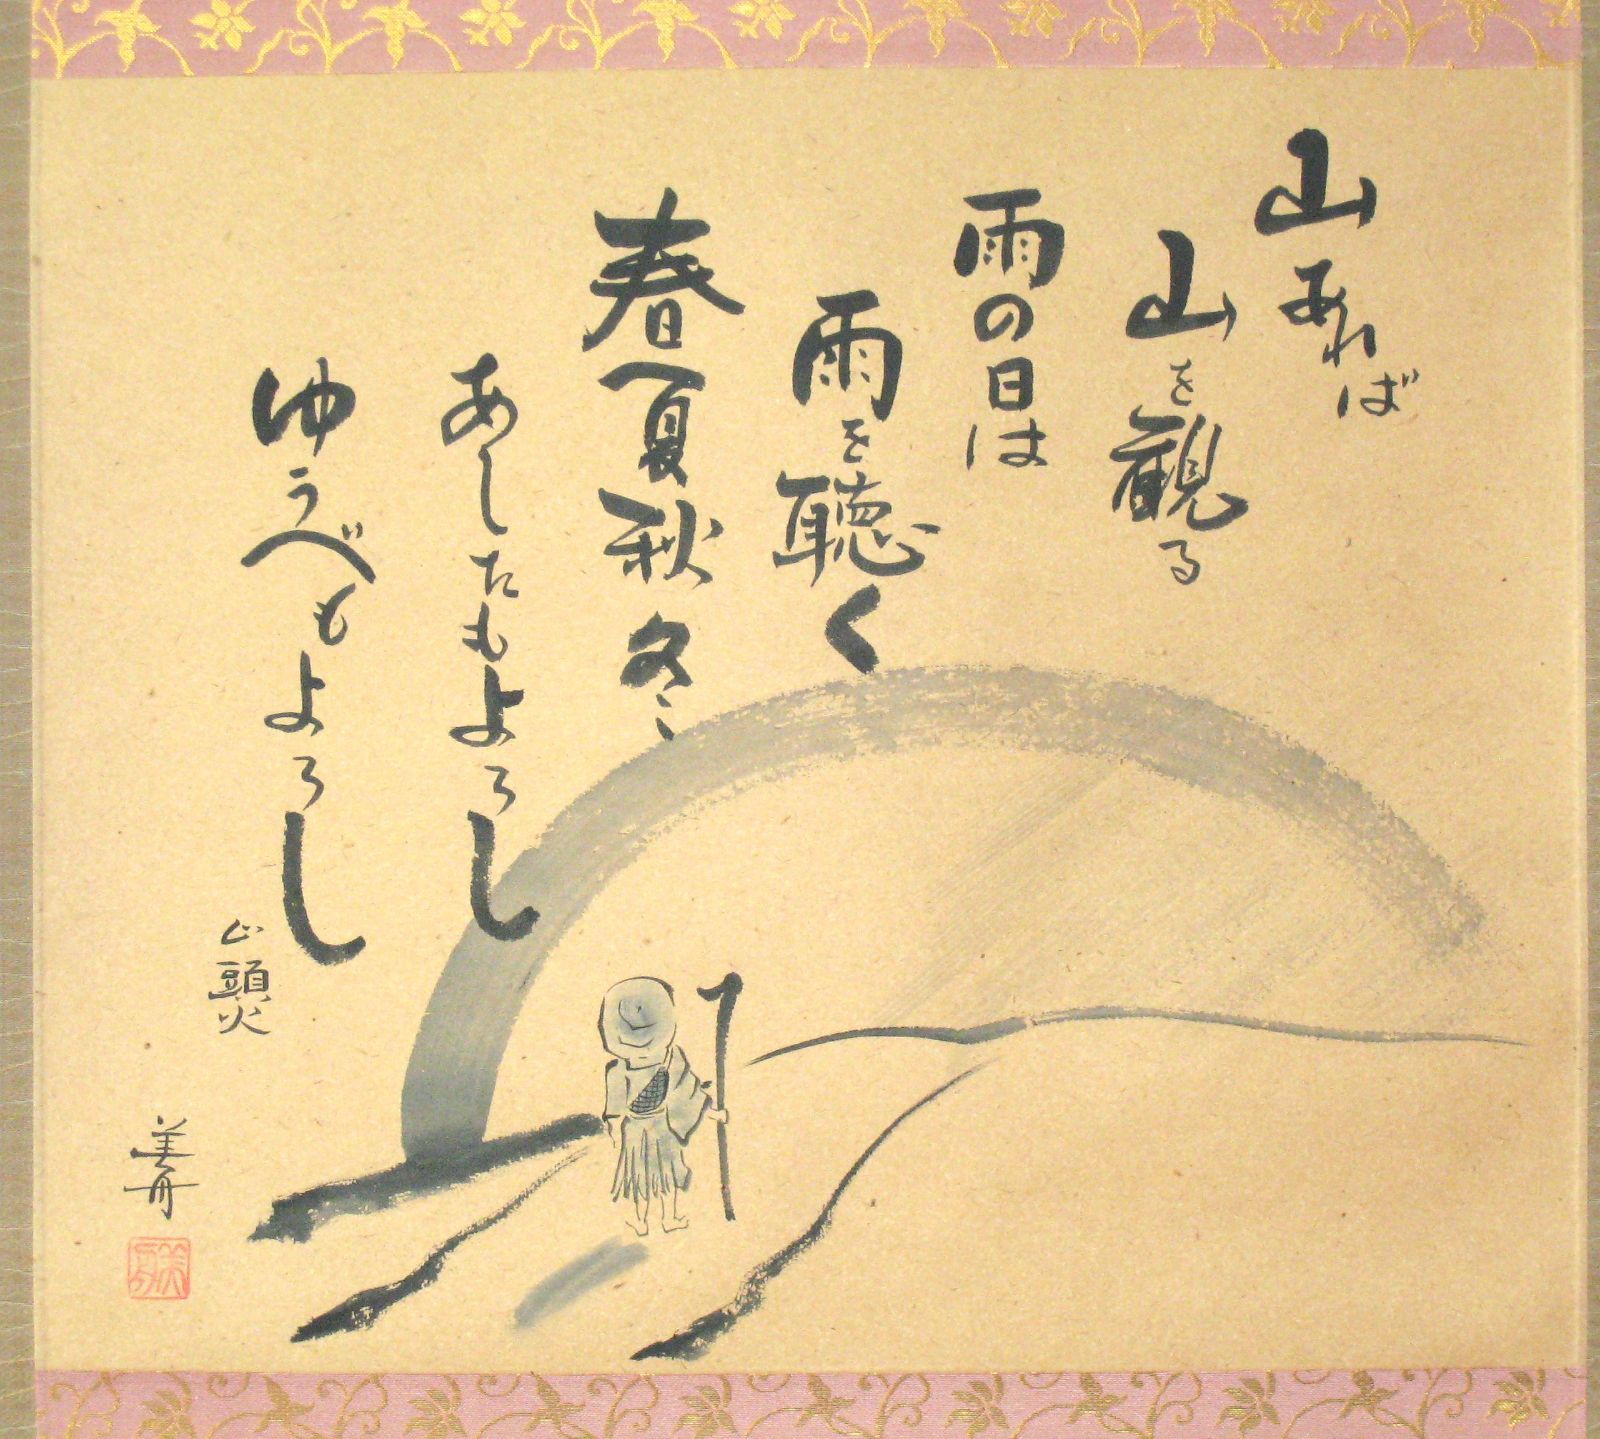 山あれば
山を観る
雨の日は
雨を聴く
春夏秋冬
あしたもよろし
ゆうべもよろし
山頭火
美舟